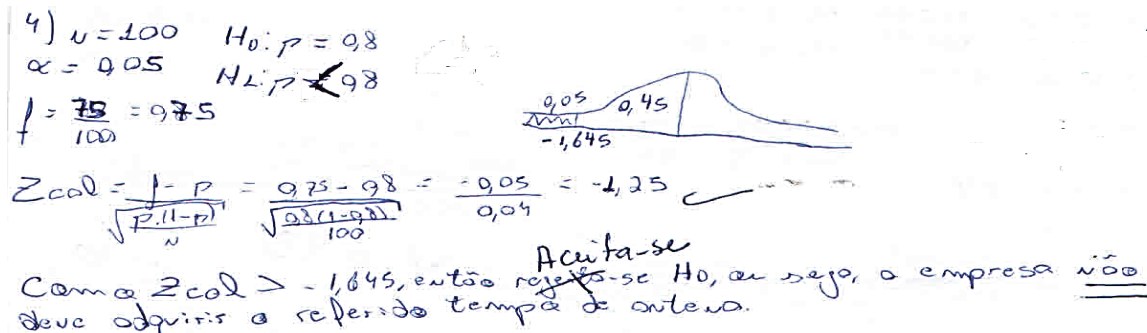 4) n = 100 H0: p = 0,8
α = 0,05 H1: p < 0,8
f = 75/100 = 0,75
0,05 0,45
-1,645
Zcal = f - p / √(p.(1-p)/n) = 0,75 - 0,8 / √(0,8(1-0,8)/100) = -0,05/0,04 = -1,25
Aceita-se
Como Zcal > -1,645, então rejeita-se H0, ou seja, a empresa não
deve adquirir o referido tempo de antena.